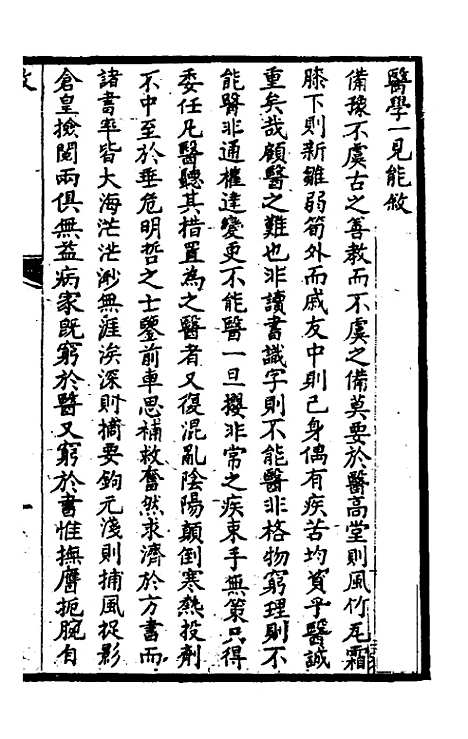 醫學一見能敘
備豫不虞古之善教而不虞之備莫要於醫高堂則風竹瓦霜
膝下則新雛弱筍外而戚友中則己身偶有疾苦均資乎醫誠
重矣哉顧醫之難也非讀書識字則不能醫非格物窮理則不
能醫非通權達變更不能醫一旦攖非常之疾束手無策只得
委任凡醫聽其措置為之醫者又復混亂陰陽顛倒寒熱投劑
不中至於垂危明哲之士鑒前車思補救奮然求濟於方書而
諸書率皆大海茫茫渺無涯涘深則摘要鉤元淺則捕風捉影
倉皇撿閱兩俱無益病家既窮於醫又窮於書惟撫膺扼腕自
一